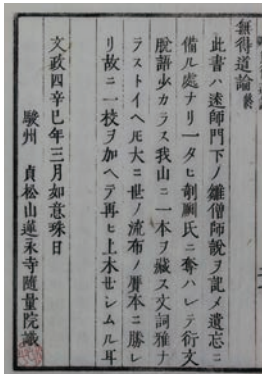 無得道論 終
此書ハ遠師門下ノ雛僧師說ヲ記メ遺忘ニ
備ル處ナリ一タヒ剞劂氏ニ奪ハレテ衍文
脫語少カラス我山ニ一本ヲ藏ス文詞雅ナ
ラストイヘ𪜈大ニ世ノ流布ノ贋本ニ勝レ
リ故ニ一校ヲ加ヘテ再ヒ上木せシムル耳
文政四辛巳年三月如意珠日
駿州 貞松山蓮永寺隨量院識